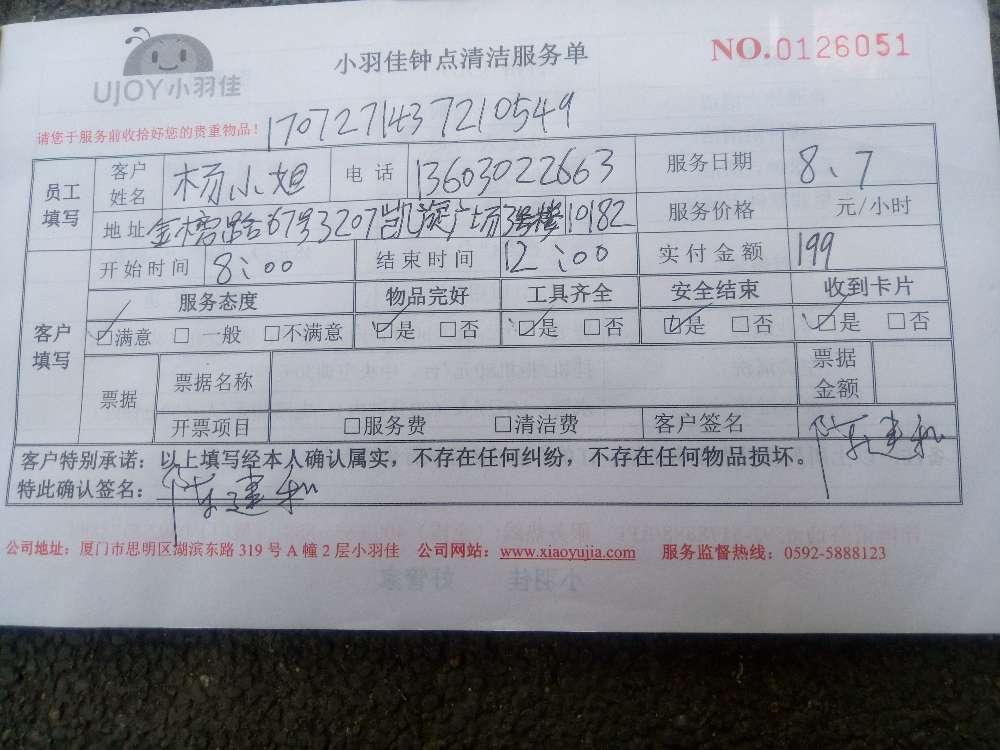 UJOY小羽佳
小羽佳钟点清洁服务单
NO.0126051
请您于服务前收拾好您的贵重物品！
170727143721054​9
员工填写 客户姓名 杨小姐 电话 13603022663 服务日期 8、7
地址 金榜路67号3207凯旋广场 10182 服务价格 元/小时
客户填写 开始时间 8:00 结束时间 12:00 实付金额 199
服务态度 物品完好 工具齐全 安全结束 收到卡片
☑满意 □一般 □不满意 ☑是 □否 ☑是 □否 ☑是 □否 ☑是 □否
票据 票据名称 票据金额
开票项目 □服务费 □清洁费 客户签名 陈建和
客户特别承诺：以上填写经本人确认属实，不存在任何纠纷，不存在任何物品损坏。
特此确认签名：陈建和
公司地址：厦门市思明区湖滨东路 319 号 A 幢 2 层小羽佳 公司网站：www.xiaoyujia.com 服务监督热线：0592-5888123